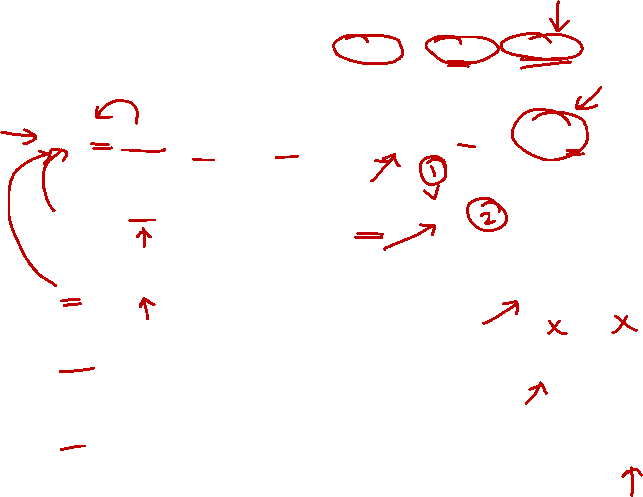 1
2
x x